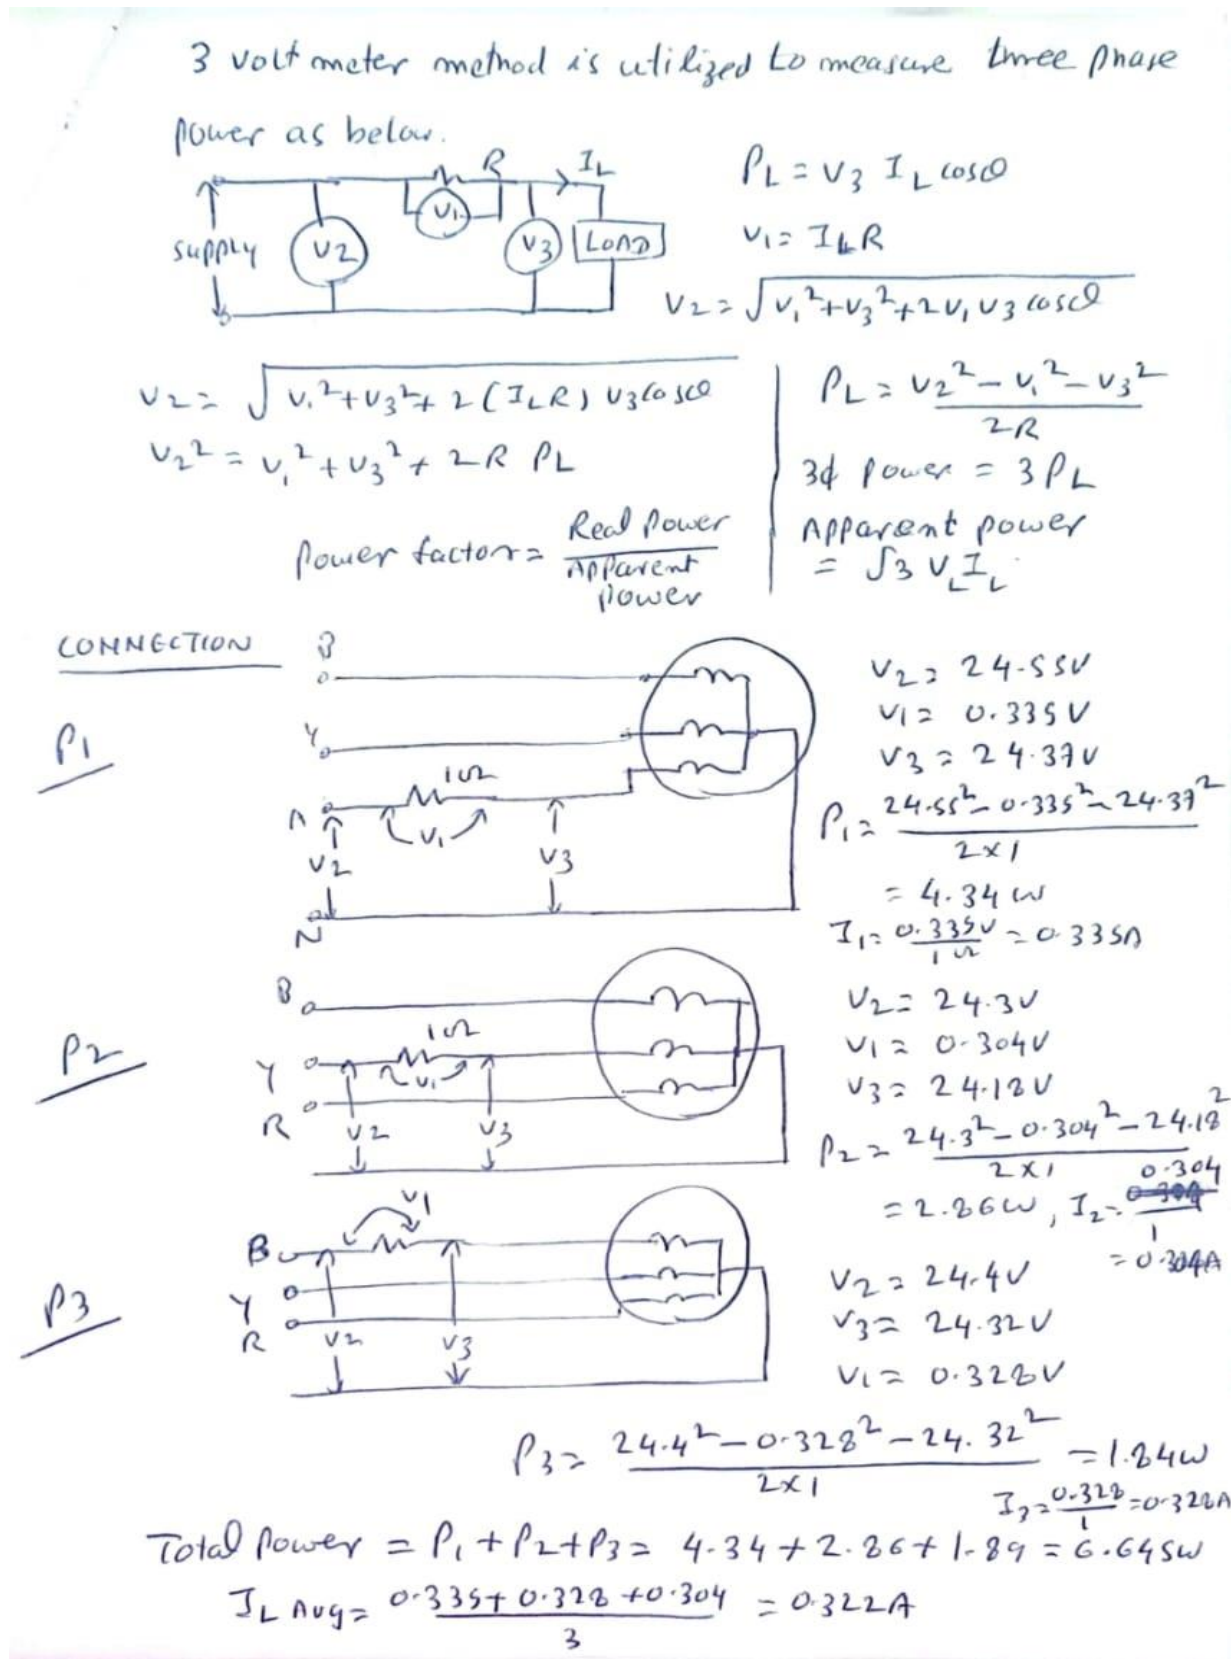 3 volt meter method is utilized to measure three phase
power as below.
R I_L
V1
supply V2 V3 LOAD
P_L = V3 I_L cosØ
V1 = I_L R
V2 = √(V1² + V3² + 2V1 V3 cosØ)
V2 = √(V1² + V3² + 2(I_L R) V3 cosØ)
V2² = V1² + V3² + 2R P_L
Power factor = Real Power / Apparent power
P_L = (V2² - V1² - V3²) / 2R
3ϕ Power = 3P_L
Apparent power
= √3 V_L I_L
CONNECTION
P1
B
Y
1Ω
R
V1
V2 V3
N
V2 = 24.55V
V1 = 0.335V
V3 = 24.37V
P1 = (24.55² - 0.335² - 24.37²) / 2×1
= 4.34 W
I1 = 0.335V / 1Ω = 0.335A
P2
B
1Ω
Y
V1
R
V2 V3
V2 = 24.3V
V1 = 0.304V
V3 = 24.18V
P2 = (24.3² - 0.304² - 24.18²) / 2×1
= 2.86W, I2 = 0.304 / 1
= 0.304A
P3
V1
B
Y
R
V2 V3
V2 = 24.4V
V3 = 24.32V
V1 = 0.328V
P3 = (24.4² - 0.328² - 24.32²) / 2×1 = 1.84W
I3 = 0.328 / 1 = 0.328A
Total Power = P1 + P2 + P3 = 4.34 + 2.86 + 1.89 = 6.645W
I_L Avg = (0.335 + 0.328 + 0.304) / 3 = 0.322A